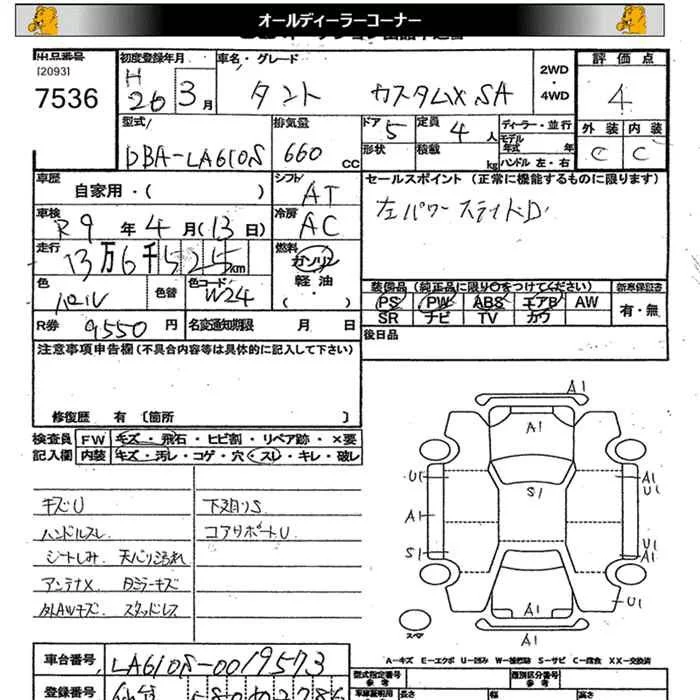 オールディーラーコーナー
出品番号
[2093]
7536
初度登録年月
H 26 年 3 月
車名・グレード
タント カスタムX SA
2WD
・
4WD
評価点
4
外装 内装
C C
型式
DBA-LA610S
排気量
660 cc
ドア 5
定員 4 人
形状
積載 kg
ディーラー・並行
モデル年式 年
ハンドル 左・右
車歴
自家用・( )
シフト
AT
セールスポイント (正常に機能するものに限ります)
左パワースライドD
車検
R9 年 4 月 (13 日)
冷房
AC
走行
13万6千525km
燃料
ガソリン
軽油
・( )
色
パール
色替
色コード
W24
装備品 (純正品に限り○をつけてください)
PS PW ABS エアB AW
SR ナビ TV カワ
新車保証書
有・無
R券 9550 円
名変通知期限 月 日
後日品
注意事項申告欄(不具合内容等は具体的に記入して下さい)
修復歴 有 〔箇所 〕
検査員 FW キズ・飛石・ヒビ割・リペア跡・×要
記入欄 内装 キズ・汚レ・コゲ・穴・スレ・キレ・破レ
キズU
ハンドルスレ
シートしみ 天バリ汚れ
アンテナX Dミラーキズ
外AWキズ スタッドレス
下廻りS
コアサポートU
A1
A1
S1
U1
A1
S1
A1
U1
U1
A1
U1
A1
A1
スペア
A-キズ E-エクボ U-凹み W-補修跡 S-サビ C-腐食 XX-交換済
車台番号 LA610S-0019573
型式指定番号
参考
類別区分番号
参考
登録番号
車庫証明用
参考
長さ
幅
高さ